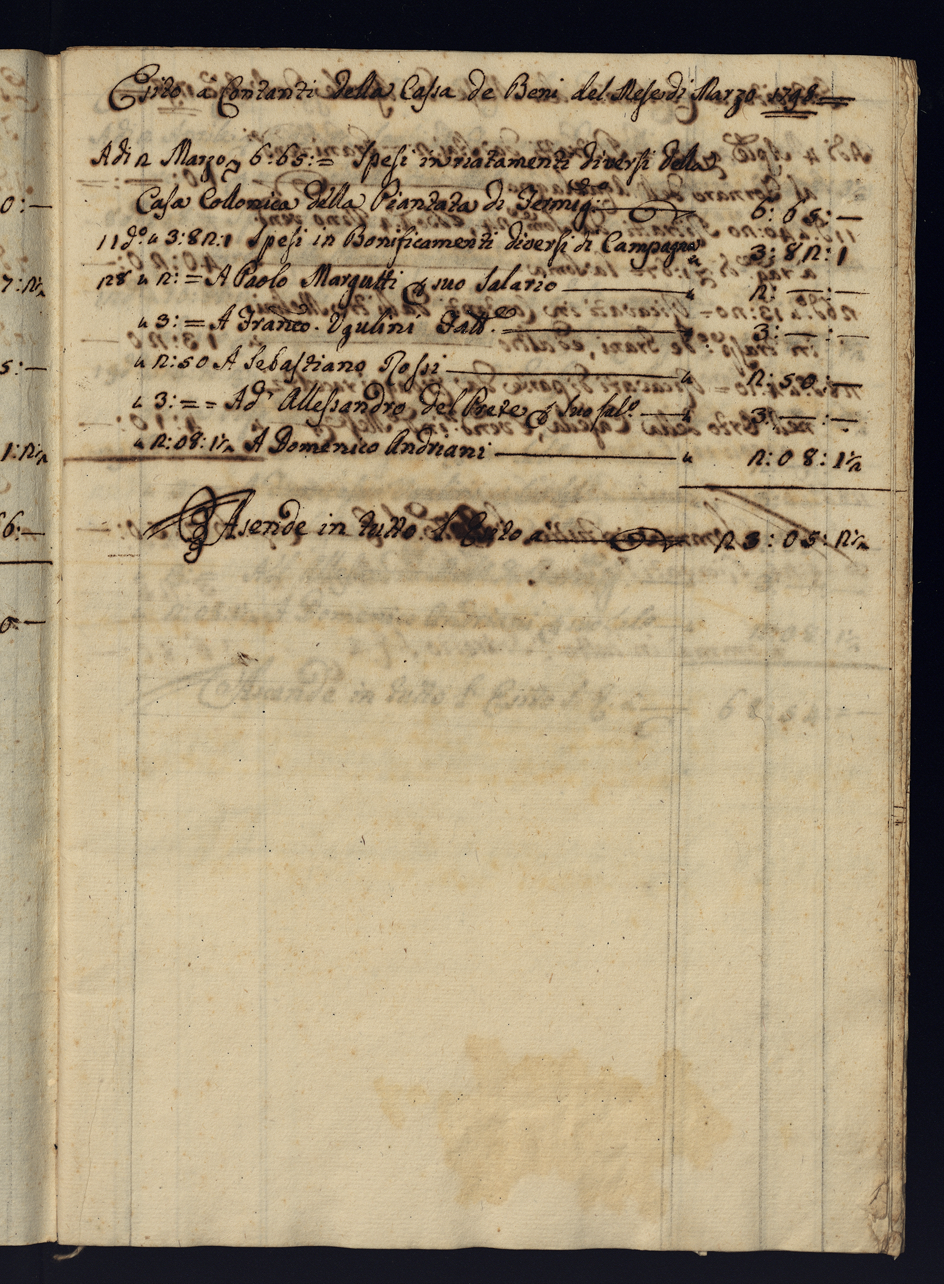 0:—
7:2½
5:—
1:2½
6:—
0:—
Esito a Contanti della Cassa de Beni del Mese di Marzo 1798
Adi 2 Marzo 6:65:= Spesi in riatamenti diversi della
Casa Collonica della Piantata di Fermig: 6:65:—
11 do „ 3:82:1 Spesi in Bonificamenti diversi di Campagna „ 3:82:1
28 „ 2:= A Paolo Margutti p suo Salario — „ 2:—:—
„ 3:= A Franco. Ugulini Fatt.e — „ 3:—:—
„ 2:50 A Sebastiano Rossi — „ 2:50:—
„ 3:== A dr Allessandro del Prete p suo sal.o — „ 3:—:—
„ 2:08:1½ A Domenico Andriani — „ 2:08:1½
Asende in tutto l'Esito a 23:05:2½